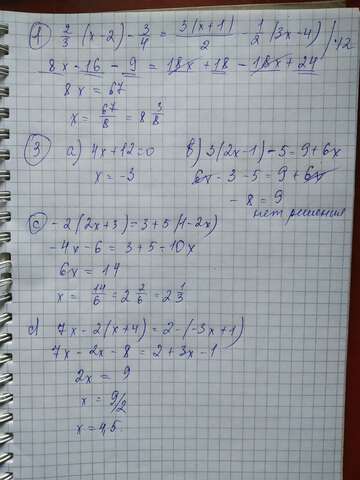 ① 2/3 (x-2) - 3/4 = 3(x+1)/2 - 1/2 (3x-4) / ·12
8x - 16 - 9 = 18x + 18 - 18x + 24
8x = 67
x = 67/8 = 8 3/8
③ a) 4x+12=0
x = -3
b) 3(2x-1) - 5 = 9+6x
6x - 3 - 5 = 9 + 6x
- 8 = 9
нет решения
c) -2(2x+3) = 3+5(1-2x)
-4x - 6 = 3 + 5 - 10x
6x = 14
x = 14/6 = 2 2/6 = 2 1/3
d) 7x - 2(x+4) = 2 - (-3x+1)
7x - 2x - 8 = 2 + 3x - 1
2x = 9
x = 9/2
x = 4,5